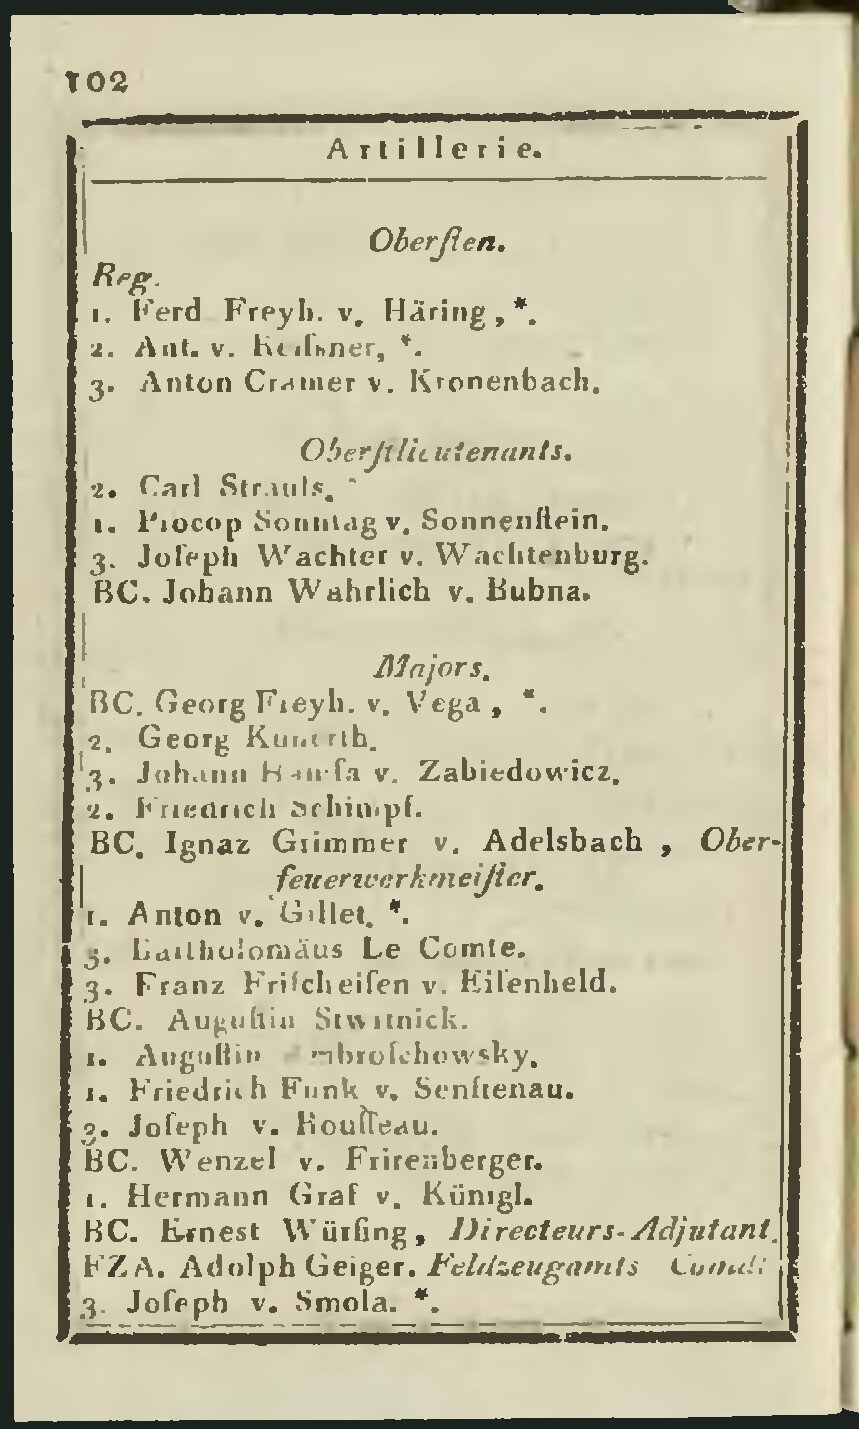 102
Artillerie.
Oberſten.
Reg.
1. Ferd Freyh. v. Häring, *.
2. Ant. v. Reiſsner, *.
3. Anton Cramer v. Kronenbach.
Oberſtlieutenants.
2. Carl Strauſs.
1. Procop Sonntag v. Sonnenſtein.
3. Joſeph Wachter v. Wachtenburg.
BC. Johann Wahrlich v. Bubna.
Majors.
BC. Georg Freyh. v. Vega, *.
2. Georg Kunerth.
3. Johann v. Zabiedowicz.
2. Friedrich Schimpf.
BC. Ignaz Grimmer v. Adelsbach, Ober-
feuerwerkmeiſter.
1. Anton v. Gillet. *.
3. Bartholomäus Le Comte.
3. Franz Friſcheiſen v. Eiſenheld.
BC. Auguſtin Stwrtnick.
1. Auguſtin
1. Friedrich Funk v. Senſtenau.
3. Joſeph v. Rouſſeau.
BC. Wenzel v. Frirenberger.
1. Hermann Graf v. Künigl.
BC. Ernest Würſing, Directeurs-Adjutant.
FZA. Adolph Geiger. Feldzeugamts
3. Joſeph v. Smola. *.